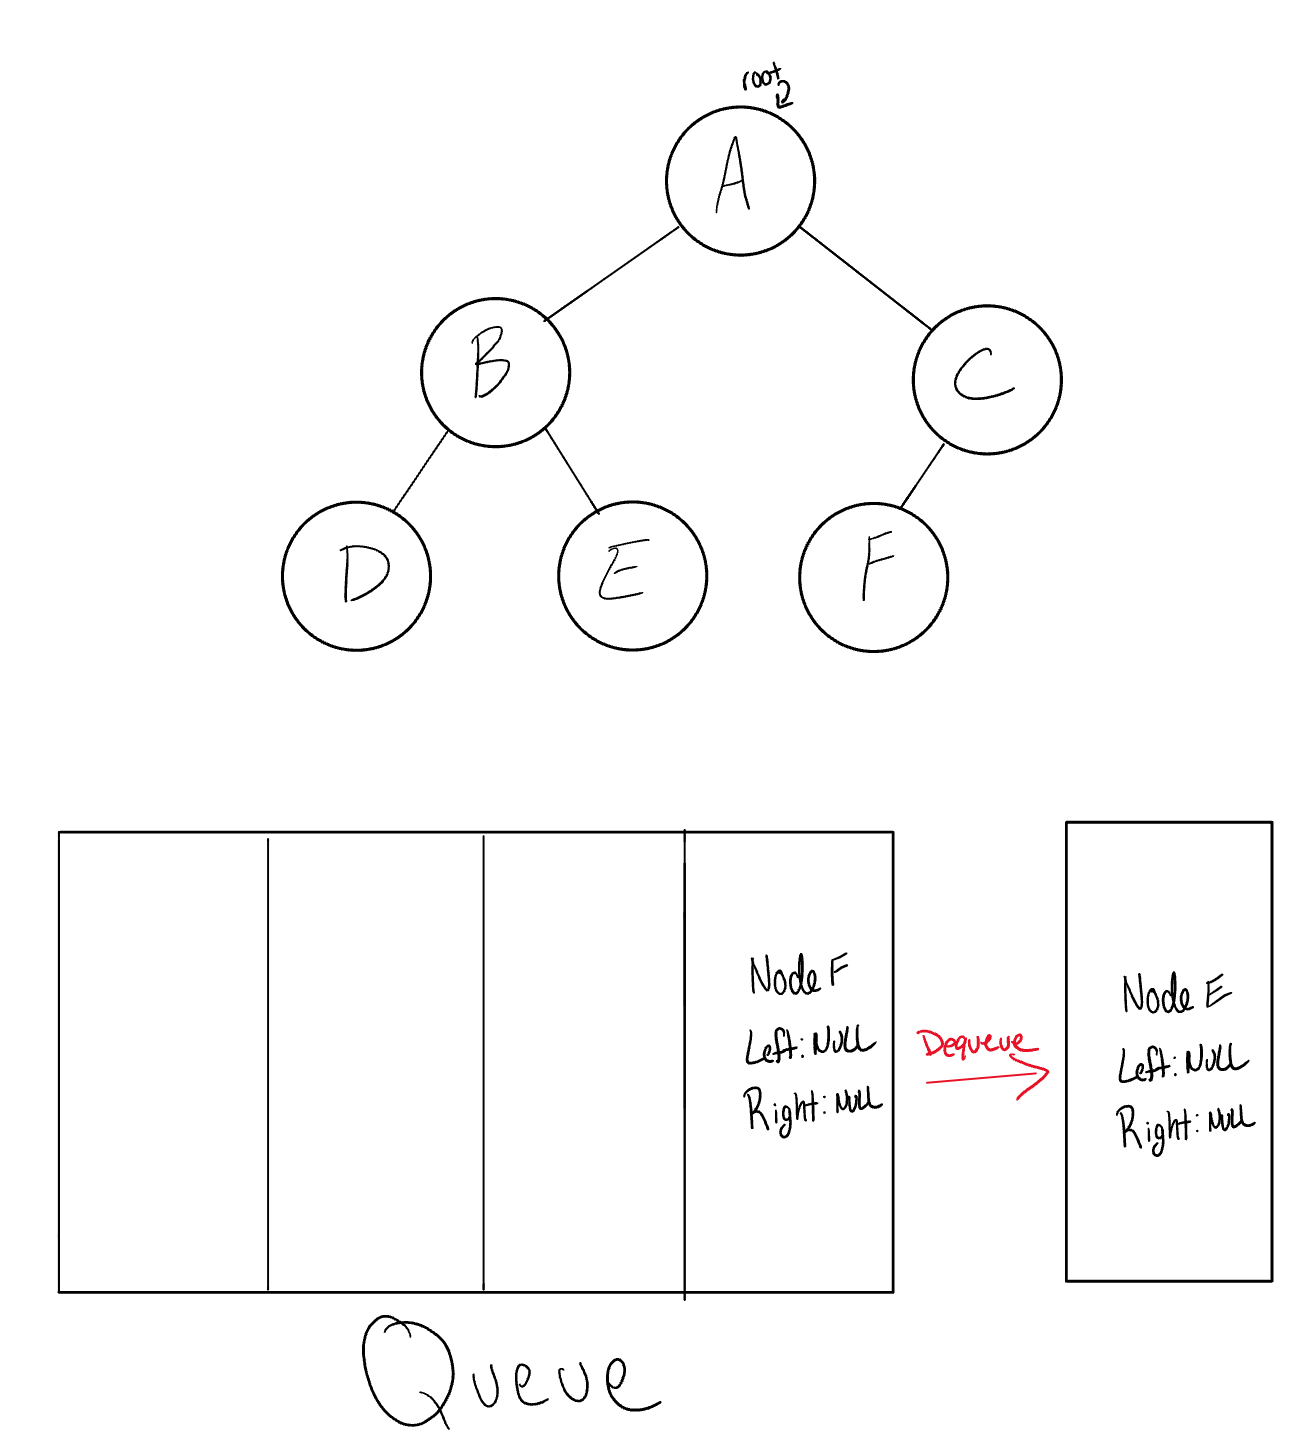 root
A
B
C
D
E
F
Node F
Left: NULL
Right: NULL
Dequeue
Node E
Left: NULL
Right: NULL
Queue